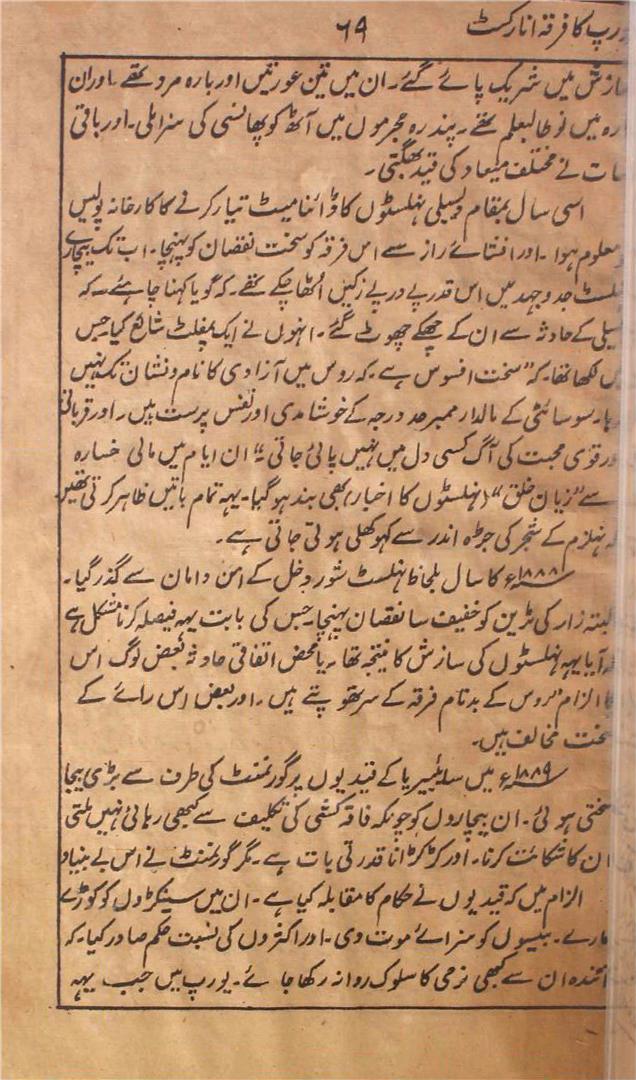 یورپ کا فرقہ انارکسٹ ۶۹
سازش میں شریک پائے گئے۔ ان میں تین عورتیں اور بارہ مرد تھے۔ اور ان
بارہ میں نو طالبعلم تھے۔ پندرہ مجرموں میں آٹھ کو پھانسی کی سزا ملی۔ اور باقی
سات نے مختلف میعاد کی قید بھگتی۔
اسی سال بمقام ویسیلی نہلسٹوں کا ڈائنامیٹ تیار کرنے کا کارخانہ پولیس
کو معلوم ہوا۔ اور افشائے راز سے اس فرقہ کو سخت نقصان پہنچا۔ اب تک بیچارے
نہلسٹ جدوجہد میں اس قدر پے در پے زکیں اُٹھا چکے تھے۔ کہ گویا کہنا چاہئے۔ کہ
ویسیلی کے حادثہ سے ان کے چھکے چھوٹ گئے۔ انہوں نے ایک پمفلٹ شائع کیا جس
میں لکھا تھا۔ کہ "سخت افسوس ہے۔ کہ روس میں آزادی کا نام و نشان تک نہیں
رہا۔ سوسائٹی کے مالدار ممبر حد درجہ کے خوشامدی اور نفس پرست ہیں۔ اور قربانی
اور قومی محبت کی آگ کسی دل میں نہیں پائی جاتی ہے" ان ایام میں مالی خسارہ
سے "زبان خلق" (نہلسٹوں کا اخبار) بھی بند ہو گیا۔ یہہ تمام باتیں ظاہر کرتی تھیں
کہ نہلزم کے شجر کی جڑھ اندر سے کھوکھلی ہوتی جاتی ہے۔
۱۸۸۸ء کا سال بلحاظ نہلسٹ شور و خل کے امن و امان سے گذر گیا۔
البتہ زار کی ٹرین کو خفیف سا نقصان پہنچا۔ جس کی بابت یہہ فیصلہ کرنا مشکل ہے
کہ آیا یہہ نہلسٹوں کی سازش کا نتیجہ تھا۔ یا محض اتفاقی حادثہ بعض لوگ اس
کا الزام روس کے بدنام فرقہ کے سر تھوپتے ہیں۔ اور بعض اس رائے کے
سخت مخالف ہیں۔
۱۸۸۹ء میں سائبیریا کے قیدیوں پر گورنمنٹ کی طرف سے بڑی بیجا
سختی ہوئی۔ ان بیچاروں کو چونکہ فاقہ کشی کی تکلیف سے کبھی رہائی نہیں ملتی
ان کا شکائت کرنا۔ اور کڑکڑانا قدرتی بات ہے۔ مگر گورنمنٹ نے اس بے بنیاد
الزام میں کہ قیدیوں نے حکام کا مقابلہ کیا ہے۔ ان میں سینکڑوں کو کوڑے
مارے۔ بیسیوں کو سزائے موت دی۔ اور اکثروں کی نسبت حکم صادر کیا۔ کہ
آئندہ ان سے کبھی نرمی کا سلوک روا نہ رکھا جائے۔ یورپ میں جب یہہ